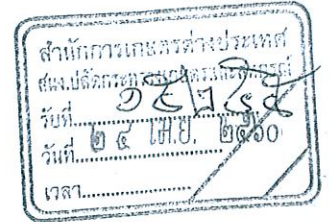 สำนักการเกษตรต่างประเทศ
สนง.ปลัดกระทรวงเกษตรและสหกรณ์
รับที่
วันที่ ๒๔ เม.ย. ๒๕๖๐
เวลา